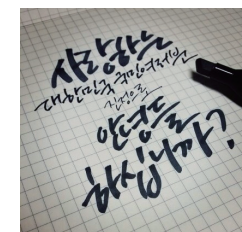 사랑하는
대한민국 국민여러분
진정으로
안녕들
하십니까?